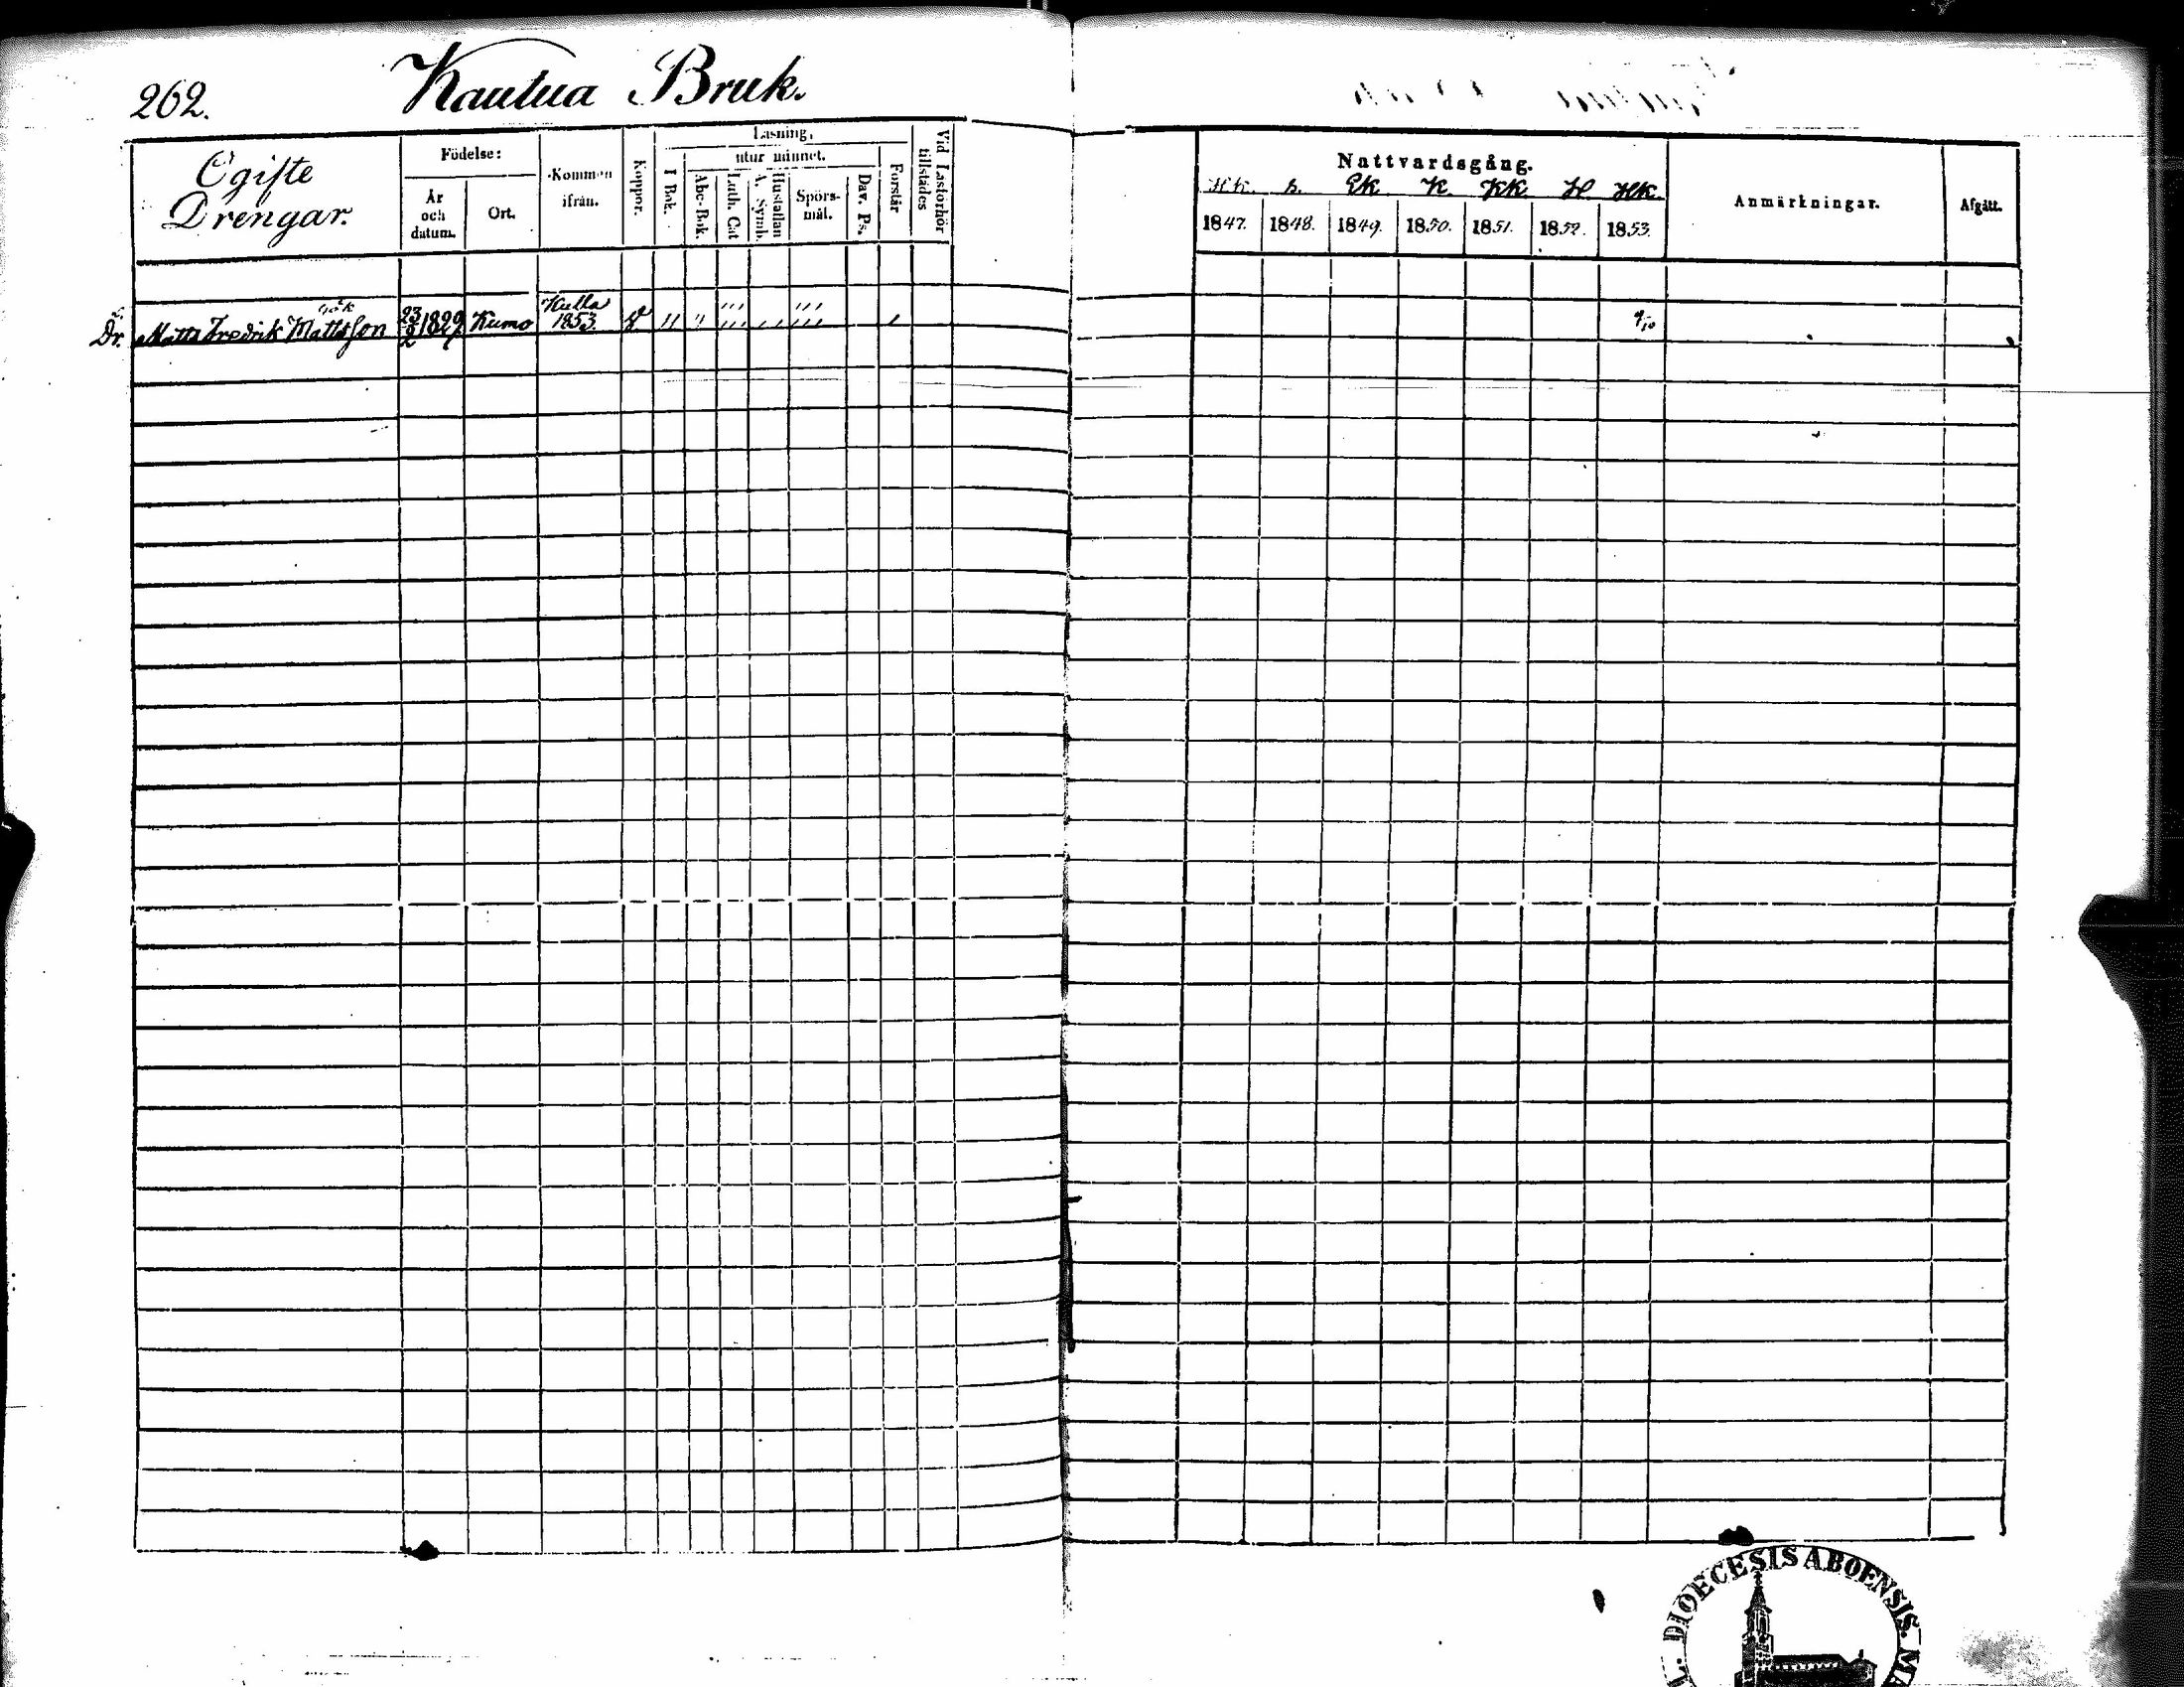 262.
Kautua Bruk.
Ogifte
Drengar.
Födelse:
År
och
datum.
Ort.
Kommen
ifrån.
Koppor.
Läsning,
utur minnet.
I Bok.
Abc-Bok.
Luth. Cat
Hustaflan
A. Symb.
Spörs-
mål.
Dav. Ps.
Förstår
Vid Läsförhör
tillstädes
Nattvardsgång.
Hk. s. Ek K. KK H Hk.
1847. 1848. 1849. 1850. 1851. 1852. 1853.
Anmärkningar.
Afgått.
Dr. Matts Fredrik Mattsson
23/2 1829
Kumo
Kulla
1853.
9/10
DIOECESIS ABOENSIS. MA